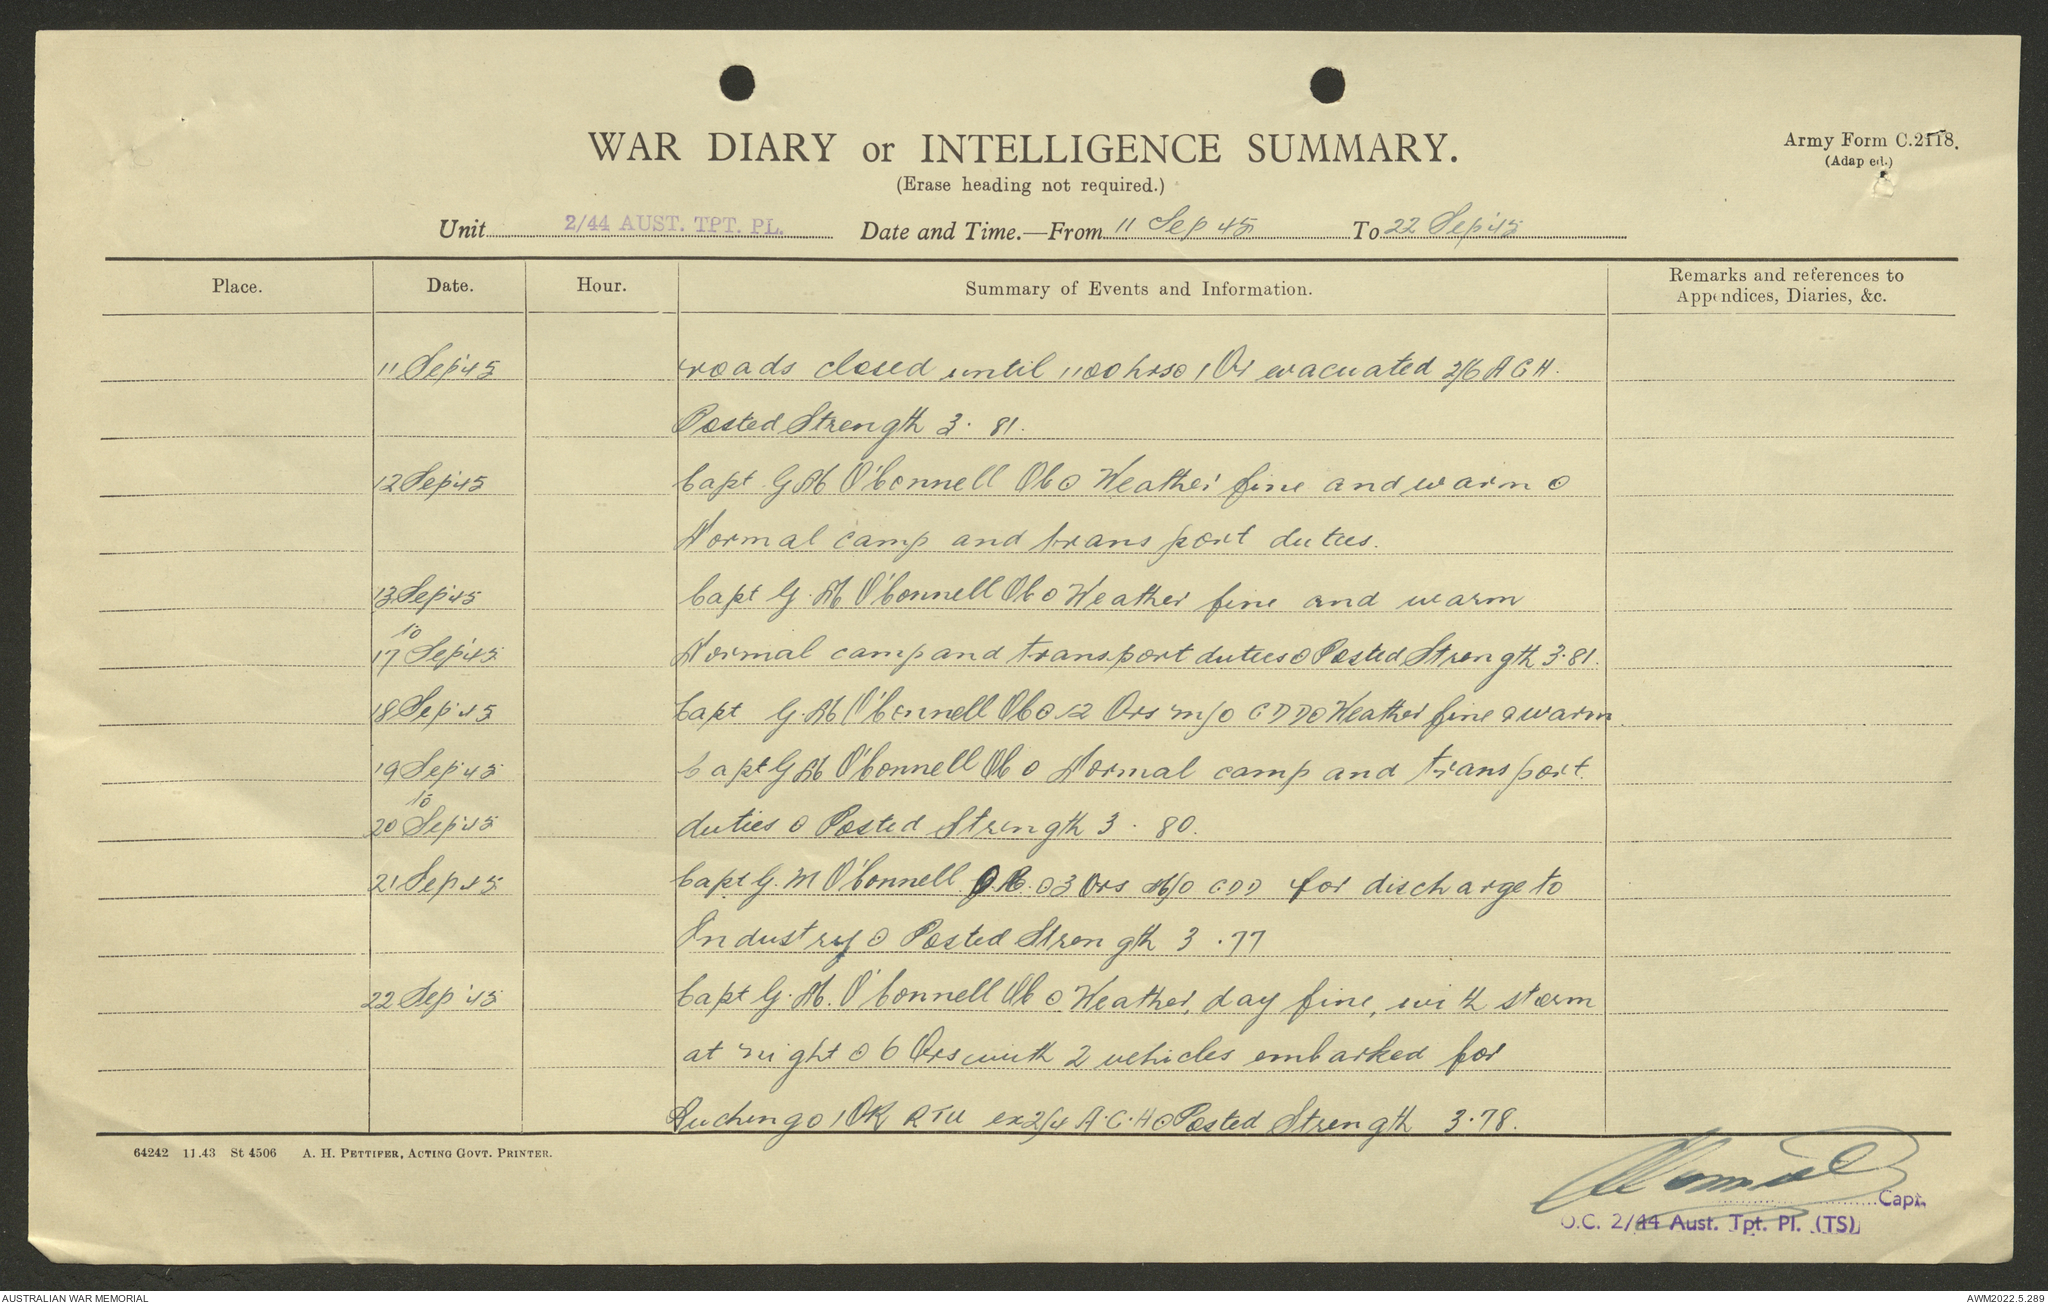 WAR DIARY or INTELLIGENCE SUMMARY.
Army Form C.2118.
(Erase heading not required.)
(Adap ed.)
Unit 2/44 AUST. TPT. PL. Date and Time.—From 11 Sep 45 To 22 Sep'45
Place. Date. Hour. Summary of Events and Information. Remarks and references to Appendices, Diaries, &c.
11 Sep'45 roads closed until 1100 hrs o 1 Or evacuated 2/6 A G H.
Posted Strength 3. 81.
12 Sep'45 Capt G M O'Connell OC o Weather fine and warm o
Normal camp and transport duties.
13 Sep'45 Capt G. M O'Connell OC o Weather fine and warm
to
17 Sep'45 Normal camp and transport duties o Posted Strength 3.81.
18 Sep'45 Capt G. M O'Connell OC o 12 Ors m/o C D D o Weather fine & warm
19 Sep'45 Capt G M O'Connell OC o Normal camp and transport
to
20 Sep'45 duties o Posted Strength 3. 80.
21 Sep'45 Capt G. M O'Connell O.C. o 3 Ors M/O C D D for discharge to
Industry o Posted Strength 3 .77
22 Sep '45 Capt G. M. O'Connell OC o Weather, day fine, with storm
at night o 6 Ors with 2 vehicles embarked for
1 OR RTU ex 2/4 A.G.H o Posted Strength 3.78.
64242 11.43 St 4506 A. H. PETTIFER, ACTING GOVT. PRINTER.
Capt.
O.C. 2/44 Aust. Tpt. Pl. (TS)
AUSTRALIAN WAR MEMORIAL
AWM2022.5.289